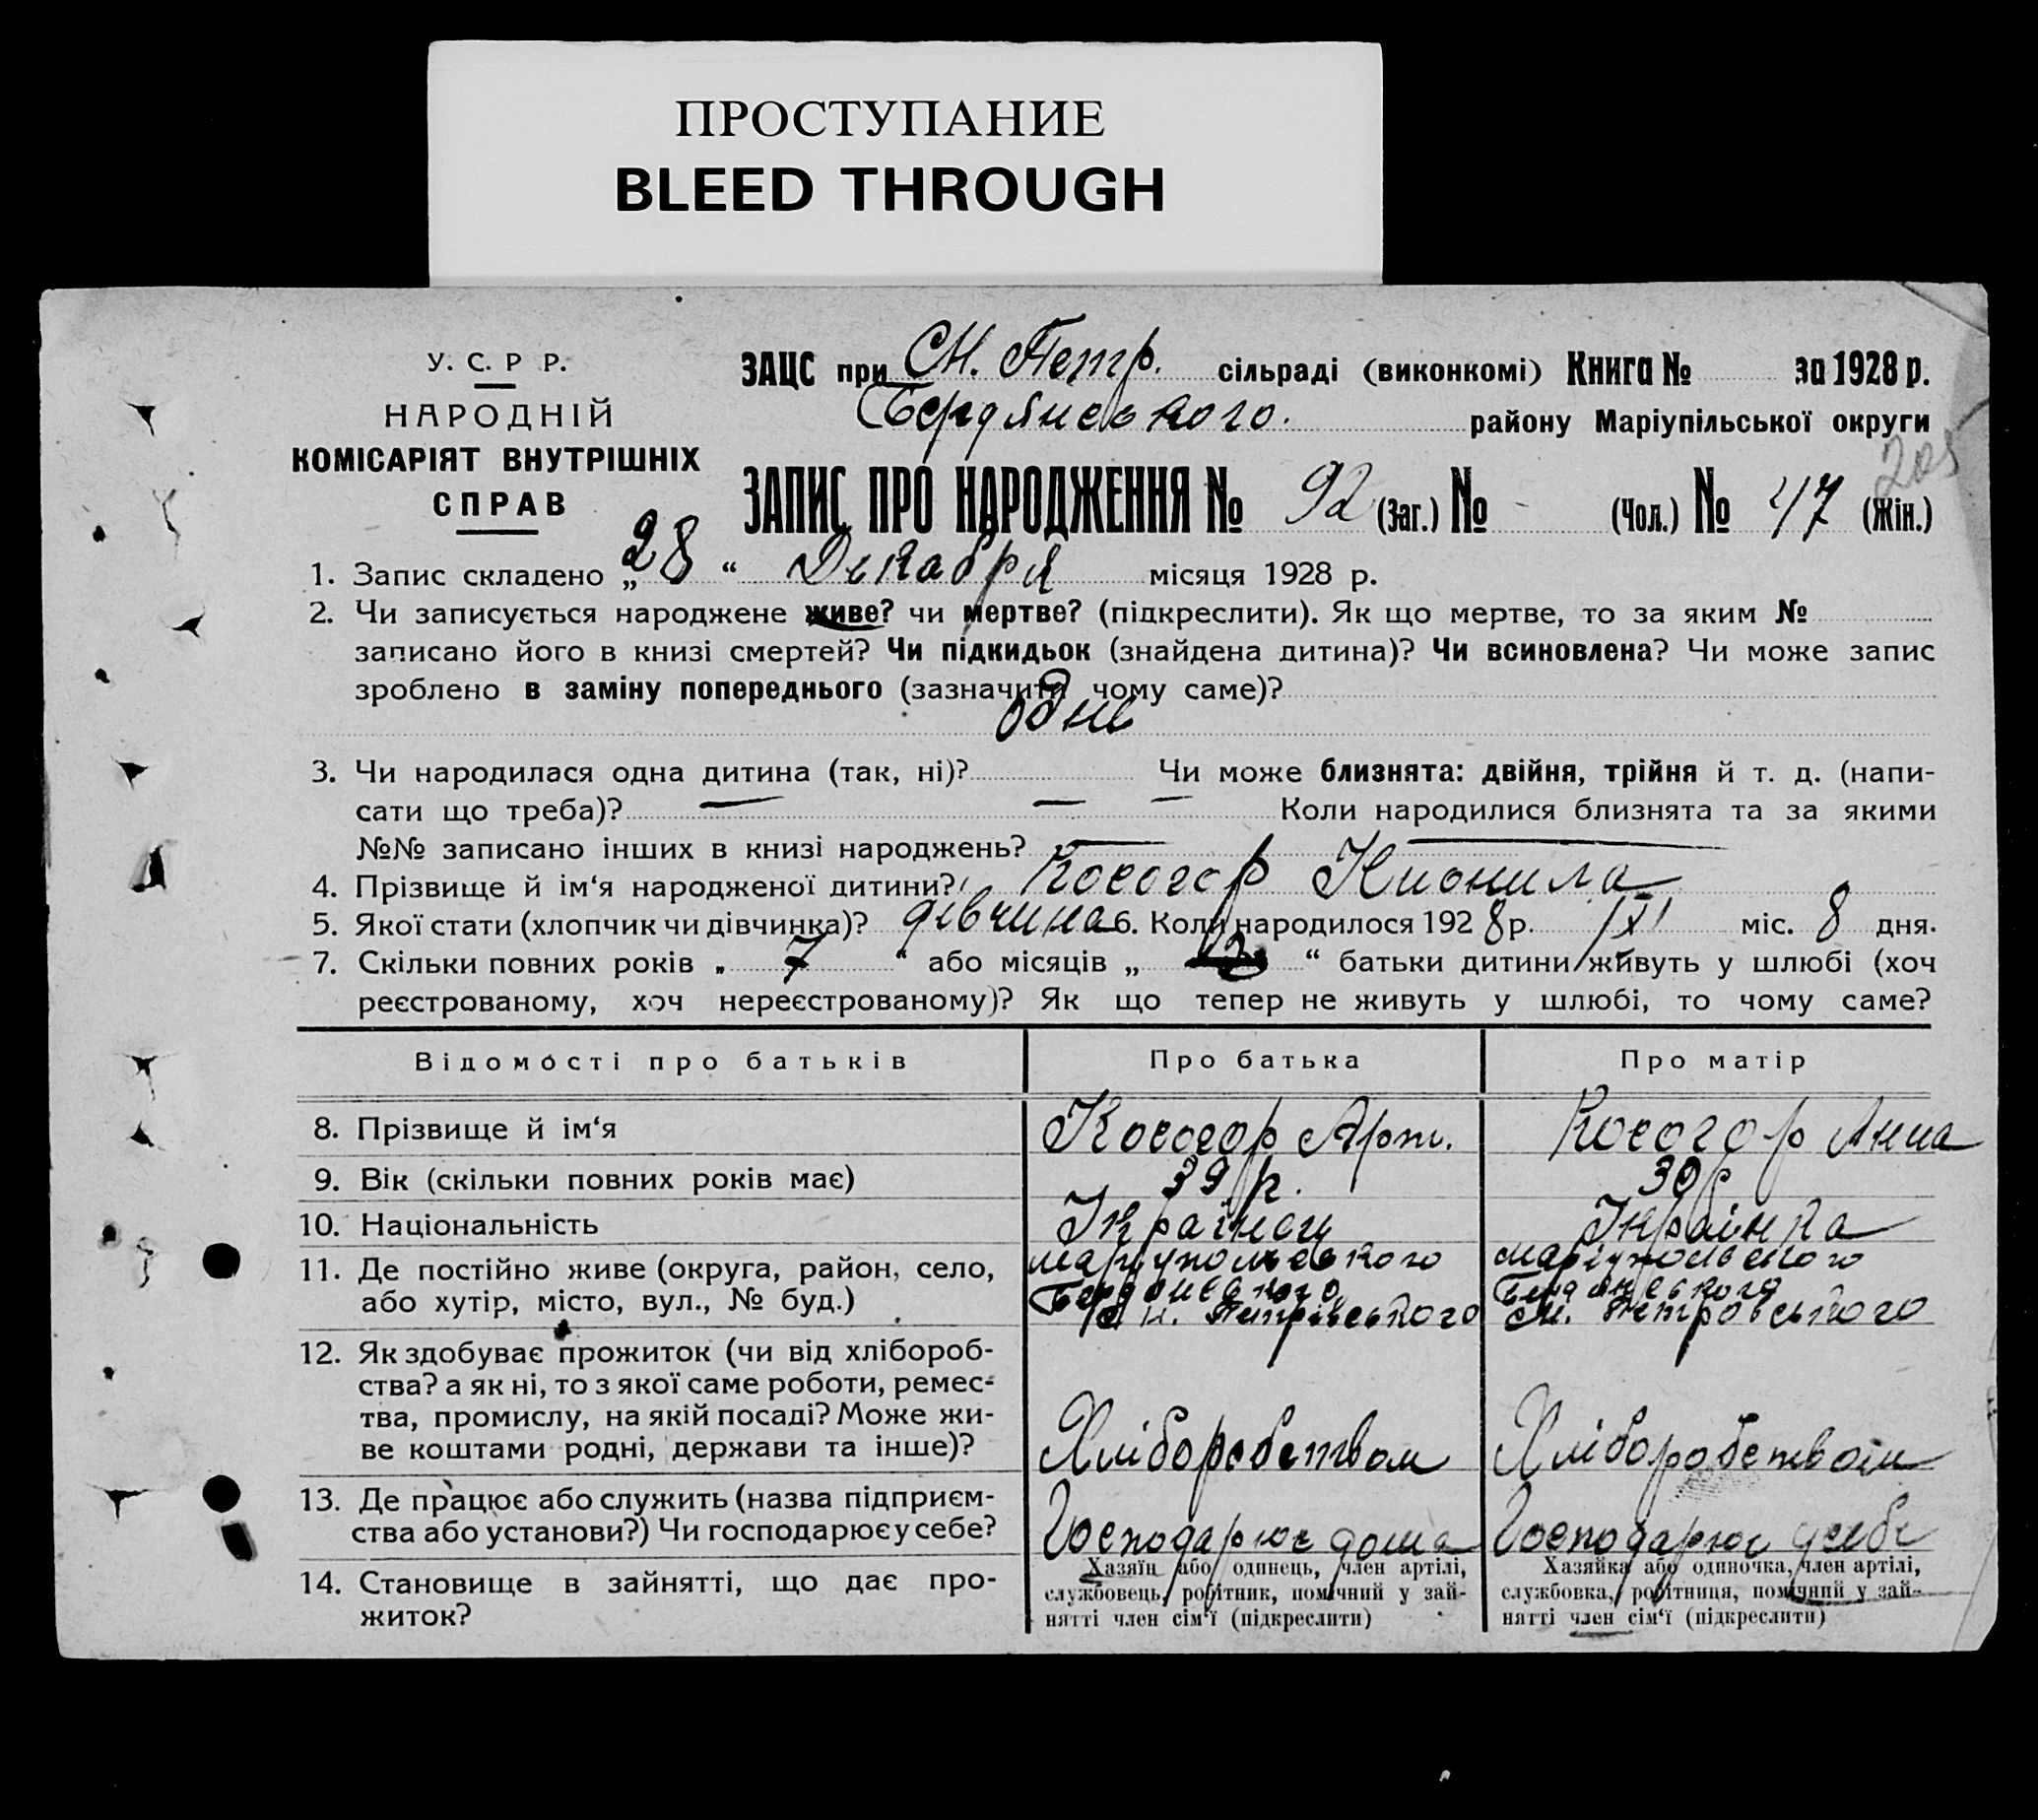 ПРОСТУПАНИЕ
BLEED THROUGH
У. С. Р Р.
НАРОДНІЙ
КОМІСАРІЯТ ВНУТРІШНІХ
СПРАВ
ЗАЦС при СН. Петр. сільраді (виконкомі) Книга № за 1928 р.
Бердянського. району Маріупільської округи
205
ЗАПИС ПРО НАРОДЖЕННЯ № 92 (Заг.) № - (Чол.) № 47 (Жін.)
1. Запис складено „28“ Декабря місяця 1928 р.
2. Чи записується народжене живе? чи мертве? (підкреслити). Як що мертве, то за яким №
записано його в книзі смертей? Чи підкидьок (знайдена дитина)? Чи всиновлена? Чи може запис
зроблено в заміну попереднього (зазначити чому саме)?
одне
3. Чи народилася одна дитина (так, ні)? Чи може близнята: двійня, трійня й т. д. (напи-
сати що треба)? — — — Коли народилися близнята та за якими
№№ записано інших в книзі народжень? — —
4. Прізвище й ім‘я народженої дитини? Косогор Нионила
5. Якої стати (хлопчик чи дівчинка)? дівчина 6. Коли народилося 1928 р. міс. 8 дня.
7. Скільки повних років „7“ або місяців „ “ батьки дитини живуть у шлюбі (хоч
реєстрованому, хоч нереєстрованому)? Як що тепер не живуть у шлюбі, то чому саме?
Відомості про батьків Про батька Про матір
8. Прізвище й ім‘я Косогор Арт. Косогор Анна
9. Вік (скільки повних років має) 39 р. 30 р
10. Національність Українец Українка
11. Де постійно живе (округа, район, село,
або хутір, місто, вул., № буд.)
Маріупольського
Бердянського
С н. Петрівського
Маріупольського
Бердянського
сн. Петровського
12. Як здобуває прожиток (чи від хлібороб-
ства? а як ні, то з якої саме роботи, ремес-
тва, промислу, на якій посаді? Може жи-
ве коштами родні, держави та інше)?
Хліборобством
Хліборобством
13. Де працює або служить (назва підприєм-
ства або установи?) Чи господарює у себе?
Господарює дома
Господарює у себе
14. Становище в зайнятті, що дає про-
житок?
Хазяїн або одинець, член артілі,
службовець, робітник, помічний у зай-
нятті член сім‘ї (підкреслити)
Хазяйка або одиночка, член артілі,
службовка, робітниця, помічний у зай-
нятті член сім‘ї (підкреслити)